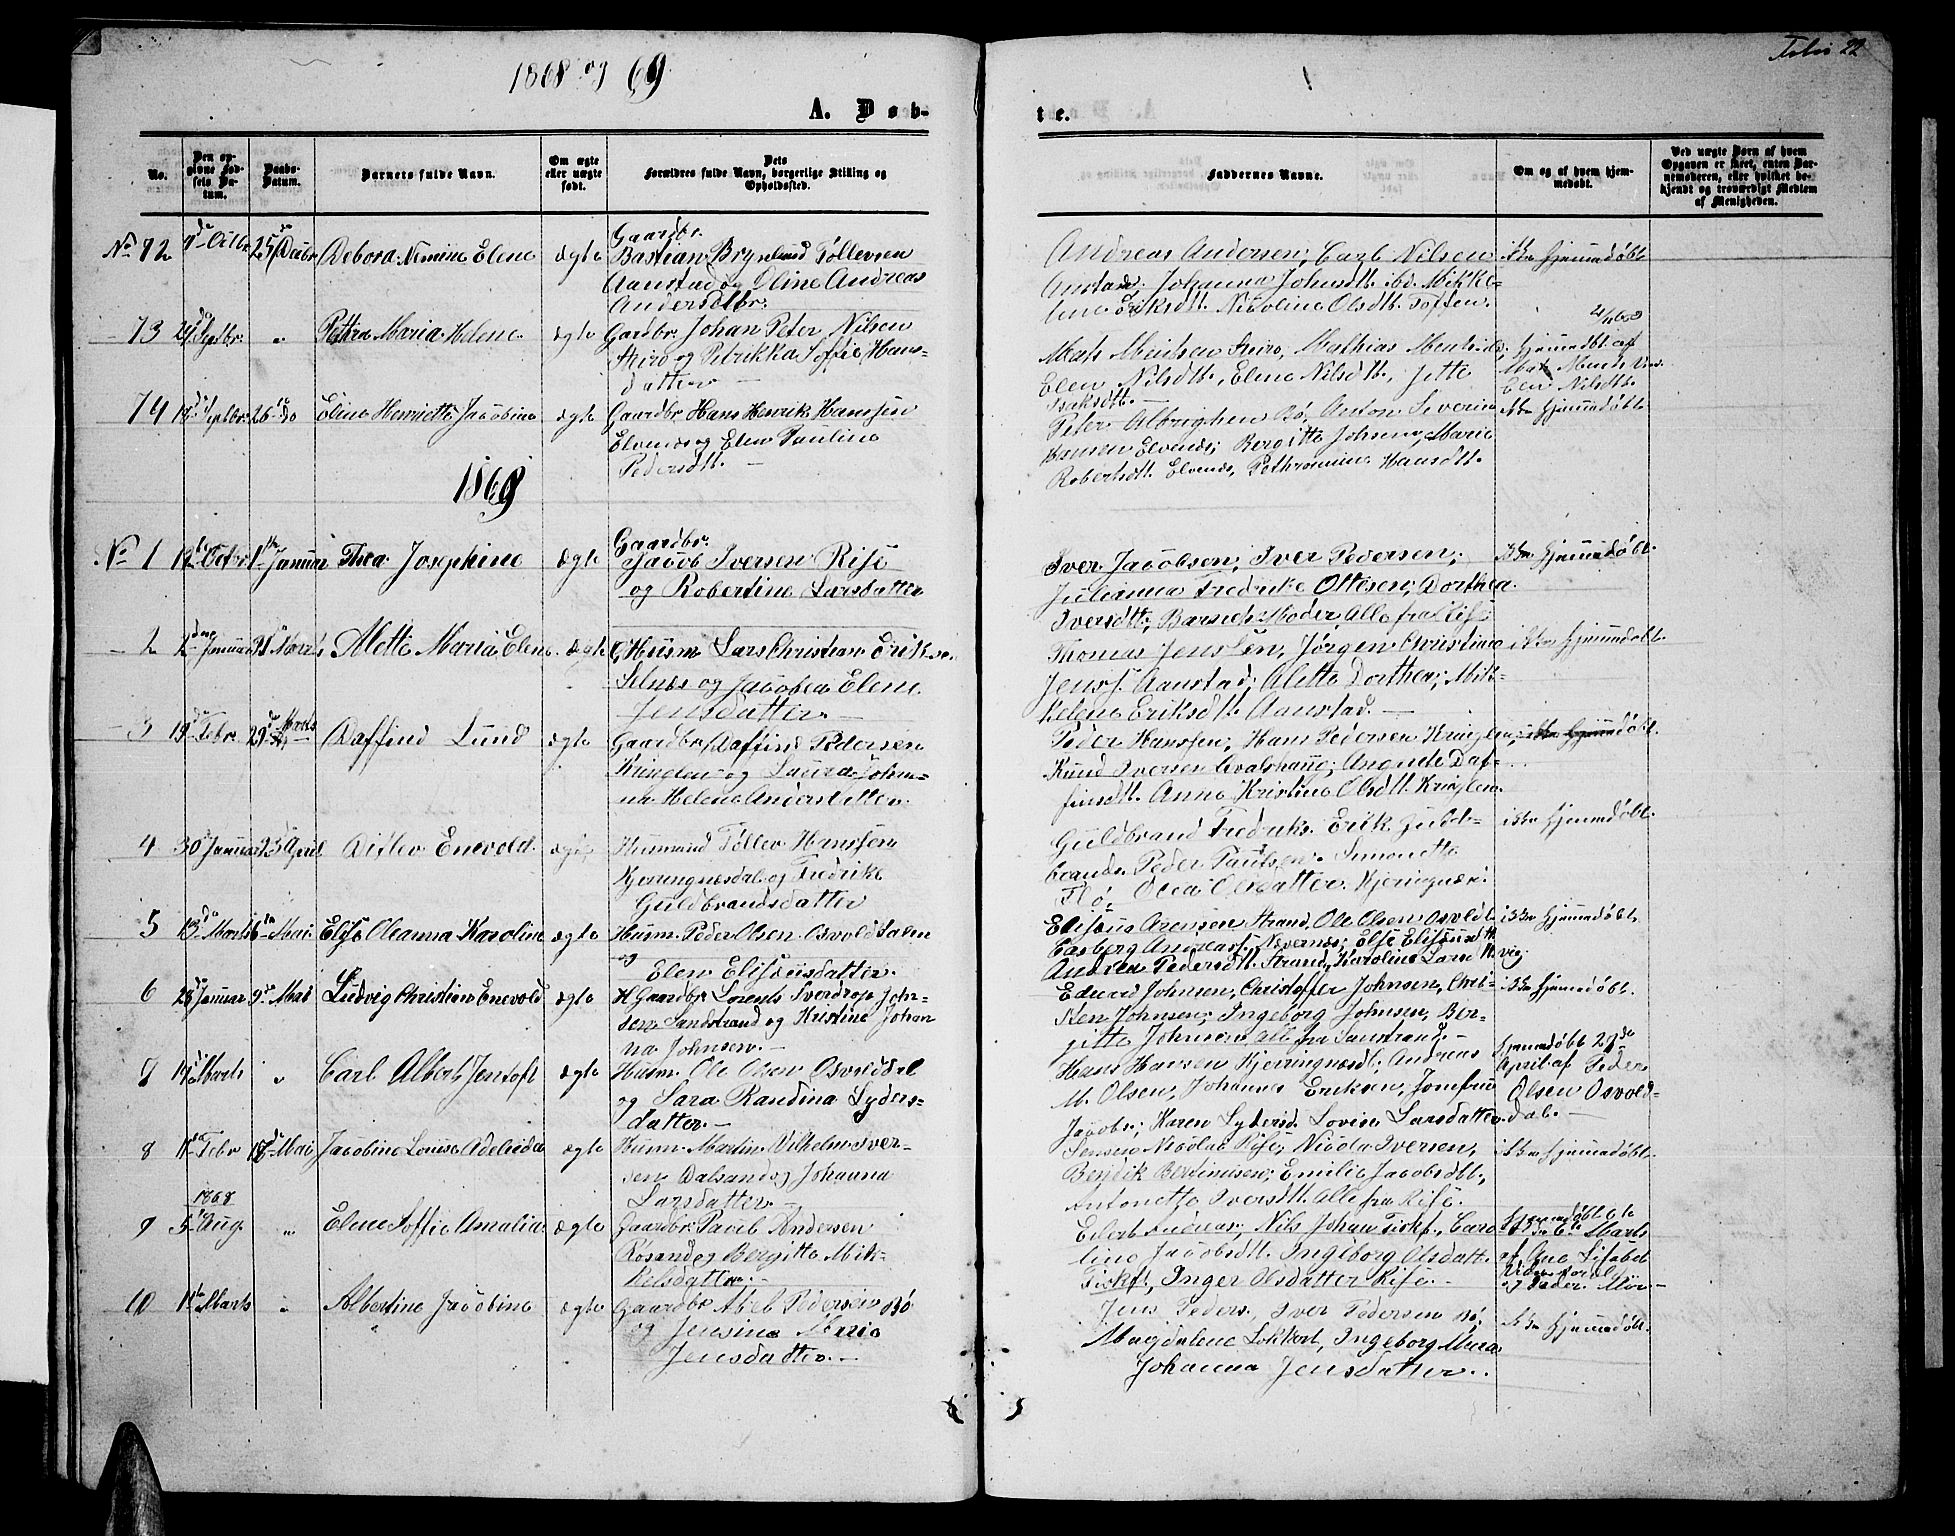 Folio 22
1868 og 69
A. Døb-
te.
No.
Den op-
givne Fød-
sels Da-
tum.
Daabs-
Datum.
Barnets fulde Navn.
Om ægte
eller uægte
født.
Dets
Forældres fulde Navn, borgerlige Stilling og
Opholdssted.
Faddernes Navne.
Om og af hvem hjem-
medøbt.
Ved uægte Børn af hvem
Opgaven er skeet, enten Bar-
nemoderen, eller hvilket be-
kjendt og troværdigt Medlem
af Menigheden.
No 72
Debora Nemine Elene
ægte
Gaardbr.
Bastian Brynlund Tøllevsen
Aanstad og Oline Andreas
Andersdtbr.
Andreas Andersen, Carl Nilsen
Anstad, Johanna Johnsdt. ibd. Mikke-
line Eriksdt. Nicoline Olsdt. Toften.
ikke hjemmedøbt
73
24 Septbr.
"
Pettra Maria Helene
ægte
Gardbr. Johan Peter Nilsen
og Petrikka Soffie Hans-
datter —
Mathias
Elen Nilsdt., Elene Nilsdt., Jette
Isaksdt. —
hjemmedbt. af
Elen Nilsdt.
74
18 Septbr.
26 do
Eline Henriette Jacobine
ægte
Gaardbr. Hans Henrik Hanssen
Elvenæs og Elen Pauline
Pedersdt. —
Peter Albrigtsen Bø, Anton Severin
Hansen Elvenæs, Bergitte Johnsen, Marie
Robertsdt. Elvenæs, Pethromine Hansdt.
ikke hjemmedøbt
1869
No 1
12 Octbr.
1ste Januar
Thea Josephine
ægte
Gaardbr.
Jacob Iversen Risø
og Robertine Larsdatter
Iver Jacobsen, Iver Pedersen,
Julianna Fredrikke Ottesen, Dorthea
Iversdtt., Barnets Moder, Alle fra Risø
ikke hjemmedøbt.
2
2den Januar
21 Marts
Alette Maria Elene
ægte
Husm. Lars Christian Eriksen
Selnæs og Jacobea Elene
Jensdatter. —
Thomas Jensen, Jørgen Christian
Jenss. Aanstad, Alette Dorthea, Mik-
kelene Eriksdt. Aanstad. —
ikke hjemmedøbt.
3
19 Febr.
29 Marts
Daffind Lund
ægte
Gaardbr. Daffind Pedersen
Kringlen og Laura Johan-
na Helene Andersdatter.
Peder Hanssen, Hans Pedersen Kringlen,
Knud Iversen Hvalshaug, Angnete Daf-
finsdt. Anne Kristine Olsdt. Kringlen.
ikke hjemmedøbt.
4
30 Januar
23 April
Ditlev Enevold.
ægte
Husmand Tøllev Hanssen
Kjerringnæsdal og Fredrikke
Guldbrandsdatter
Guldbrand Fredriks. Erik Guld-
brands. Peder Paulsen. Simonette
Flø, Olea Olsdatter, Kjeringnæs.
ikke hjemmedøbt.
5
13 Marts
6te Mai
Else Oleanna Karoline
ægte
Husm. Peder Olsen Osvolddalen
og
Elen Elisæusdatter.
Elisæus Arensen Strand, Ole Olsen Osvoldt
Andreass. Nevernæs, Else Elisæusdtt.
Andrea Pedersdtt. Strand, Karoline Larsdtt. vig
ikke hjemmedøbt.
6
28 Januar
9de Mai
Ludvig Christian Enevold
ægte
Gaardbr. Lorents Sverdrop John-
sen Sandstrand og Kristine Johan-
na Johnsen. —
Edvard Johnsen, Christoffer Johnsen, Chris-
ken Johnsen, Ingeborg Johnsen, Ber-
gitte Johnsen, alle fra Sanstrand. —
ikke hjemmedøbt.
7
19 Marts
"
Carl Albert Jentoft
ægte
Husm. Ole Olsen Osvolddal
og Sara Randina Lyders-
datter. —
Hans Hansen Kjerringnæsdl. Andreas
M. Olsen, Johannes Eriksen, Jomfru
Jacobs., Karen Lydersd. Lovise Larsdatter.
hjemmedøbt 29de
April af Peder
Olsen Osvold-
dal. —
8
11te Febr.
17de Mai
Jacobine Louise Adeleide
ægte
Husm. Martin Vilhelm Iver-
sen Dalsand og Johanna
Larsdatter. —
Jensen Nicolai Risø, Nicolai Iversen,
Bendik Bertinusen, Emilie Jacobsdtt.
Antonette Iversdt. Alle fra Risø.
ikke hjemmedøbt.
9
1868
5te Aug.
"
Elene Soffie Amalia
ægte
Gaardbr. Pareli Andersen
Røsand og Bergitte Mik-
kelsdatter. —
Edert Andreas, Nils Johan Fiskf., Caro-
line Jacobsdt. Ingeborg Olsdatt.
Fiskf., Inger Olsdatter Risø. —
Hjemmedøbt
Marts
af Ane Lisabet
og Peder
10
11te Marts
"
Albertine Jacobine
ægte
Gaardbr. Abel Pedersen Bø
og Jensine Marie
Jensdatter. —
Jens Peders., Iver Pedersen Bø,
Magdalene Lokkert, Ingeborg Maria
Johanna Jensdatter.
ikke hjemmedøbt.